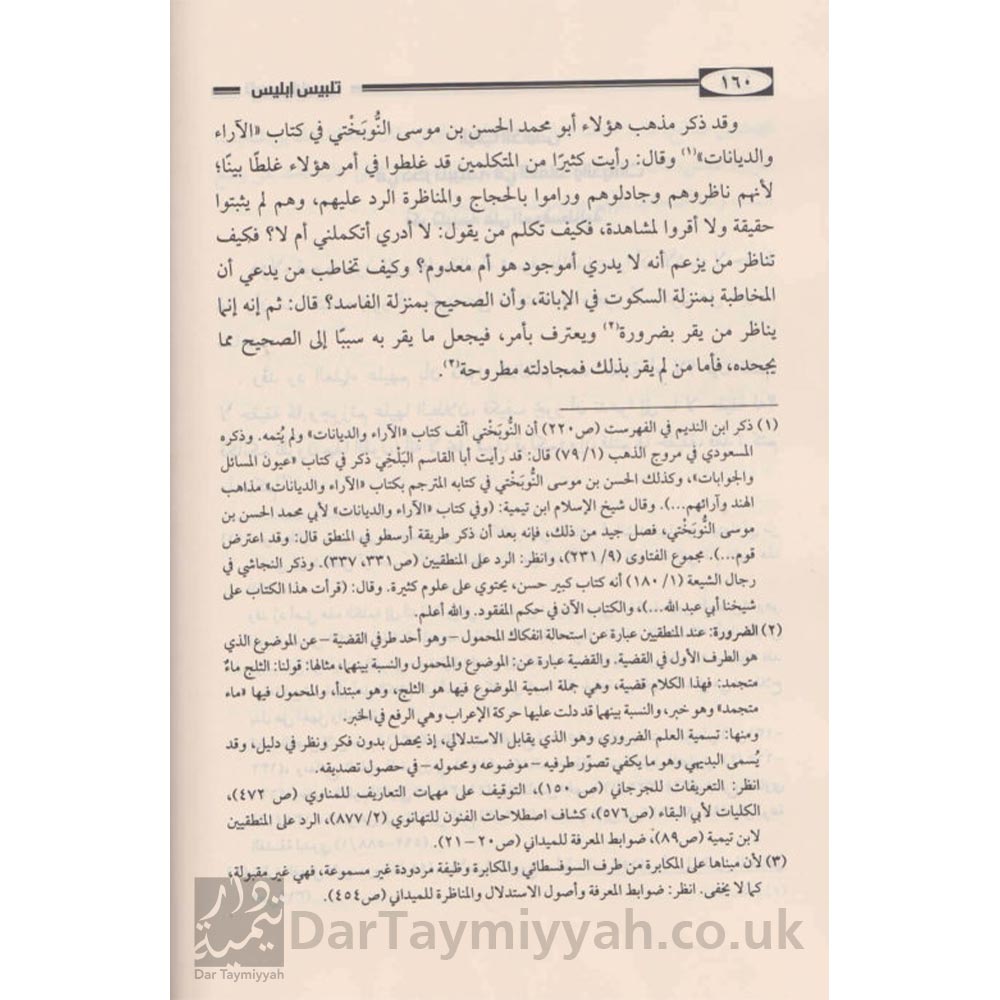 ١٦٠
تلبيس إبليس
وقد ذكر مذهب هؤلاء أبو محمد الحسن بن موسى النُّوبَختي في كتاب «الآراء
والديانات»(١) وقال: رأيت كثيرًا من المتكلمين قد غلطوا في أمر هؤلاء غلطًا بينًا؛
لأنهم ناظروهم وجادلوهم وراموا بالحجاج والمناظرة الرد عليهم، وهم لم يثبتوا
حقيقة ولا أقروا لمشاهدة، فكيف تكلم من يقول: لا أدري أتكلمني أم لا؟ فكيف
تناظر من يزعم أنه لا يدري أموجود هو أم معدوم؟ وكيف تخاطب من يدعي أن
المخاطبة بمنزلة السكوت في الإبانة، وأن الصحيح بمنزلة الفاسد؟ قال: ثم إنه إنما
يناظر من يقر بضرورة(٢) ويعترف بأمر، فيجعل ما يقر به سببًا إلى الصحيح مما
يجحده، فأما من لم يقر بذلك فمجادلته مطروحة(٣).
(١) ذكر ابن النديم في الفهرست (ص٢٢٠) أن النُّوبَختي ألف كتاب «الآراء والديانات» ولم يُتمه. وذكره
المسعودي في مروج الذهب (١/ ٧٩) قال: قد رأيت أبا القاسم البَلْخِي ذكر في كتاب «عيون المسائل
والجوابات»، وكذلك الحسن بن موسى النُّوبَختي في كتابه المترجم بكتاب «الآراء والديانات» مذاهب
الهند وآرائهم...). وقال شيخ الإسلام ابن تيمية: (وفي كتاب «الآراء والديانات» لأبي محمد الحسن بن
موسى النُّوبَختي، فصل جيد من ذلك، فإنه بعد أن ذكر طريقة أرسطو في المنطق قال: وقد اعترض
قوم...). مجموع الفتاوى (٩/ ٢٣١)، وانظر: الرد على المنطقيين (ص٣٣١، ٣٣٧). وذكر النجاشي في
رجال الشيعة (١/ ١٨٠) أنه كتاب كبير حسن، يحتوي على علوم كثيرة. وقال: (قرأت هذا الكتاب على
شيخنا أبي عبد الله...)، والكتاب الآن في حكم المفقود. والله أعلم.
(٢) الضرورة: عند المنطقيين عبارة عن استحالة انفكاك المحمول –وهو أحد طرفي القضية– عن الموضوع الذي
هو الطرف الأول في القضية. والقضية عبارة عن: الموضوع والمحمول والنسبة بينهما، مثالها: قولنا: الثلج ماءٌ
متجمد: فهذا الكلام قضية، وهي جملة اسمية الموضوع فيها هو الثلج، وهو مبتدأ، والمحمول فيها «ماء
متجمد» وهو خبر، والنسبة بينهما قد دلت عليها حركة الإعراب وهي الرفع في الخبر.
ومنها: تسمية العلم الضروري وهو الذي يقابل الاستدلالي، إذ يحصل بدون فكر ونظر في دليل، وقد
يُسمى البديهي وهو ما يكفي تصوّر طرفيه– موضوعه ومحموله– في حصول تصديقه.
انظر: التعريفات للجرجاني (ص ١٥٠)، التوقيف على مهمات التعاريف للمناوي (ص ٤٧٢)،
الكليات لأبي البقاء (ص٥٧٦)، كشاف اصطلاحات الفنون للتهانوي (٢/ ٨٧٧)، الرد على المنطقيين
لابن تيمية (ص٨٩)، ضوابط المعرفة للميداني (ص٢٠ – ٢١).
(٣) لأن مبناها على المكابرة من طرف السوفسطائي والمكابرة وظيفة مردودة غير مسموعة، فهي غير مقبولة،
كما لا يخفى. انظر: ضوابط المعرفة وأصول الاستدلال والمناظرة للميداني (ص٤٥٤).
دار تيمية
Dar Taymiyyah
DarTaymiyyah.co.uk